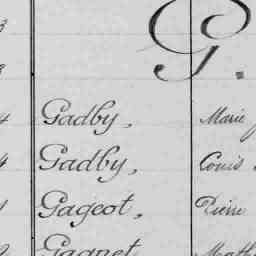 G.
Gadby, Marie
Gadby, Louis
Gageot, Pierre
Gagnet Math